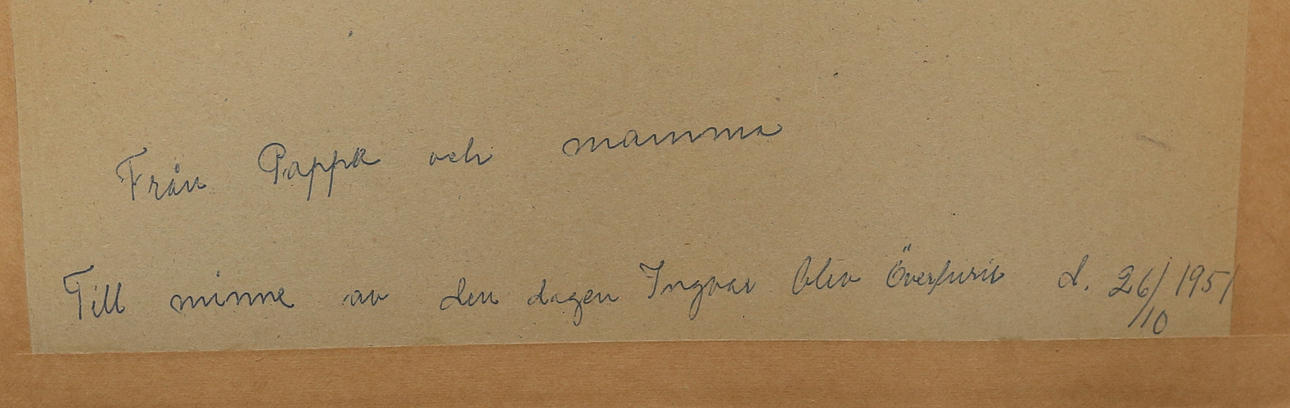 Från Pappa och mamma
Till minne av den dagen Ingvar blev Överfurir d. 26/10 1951